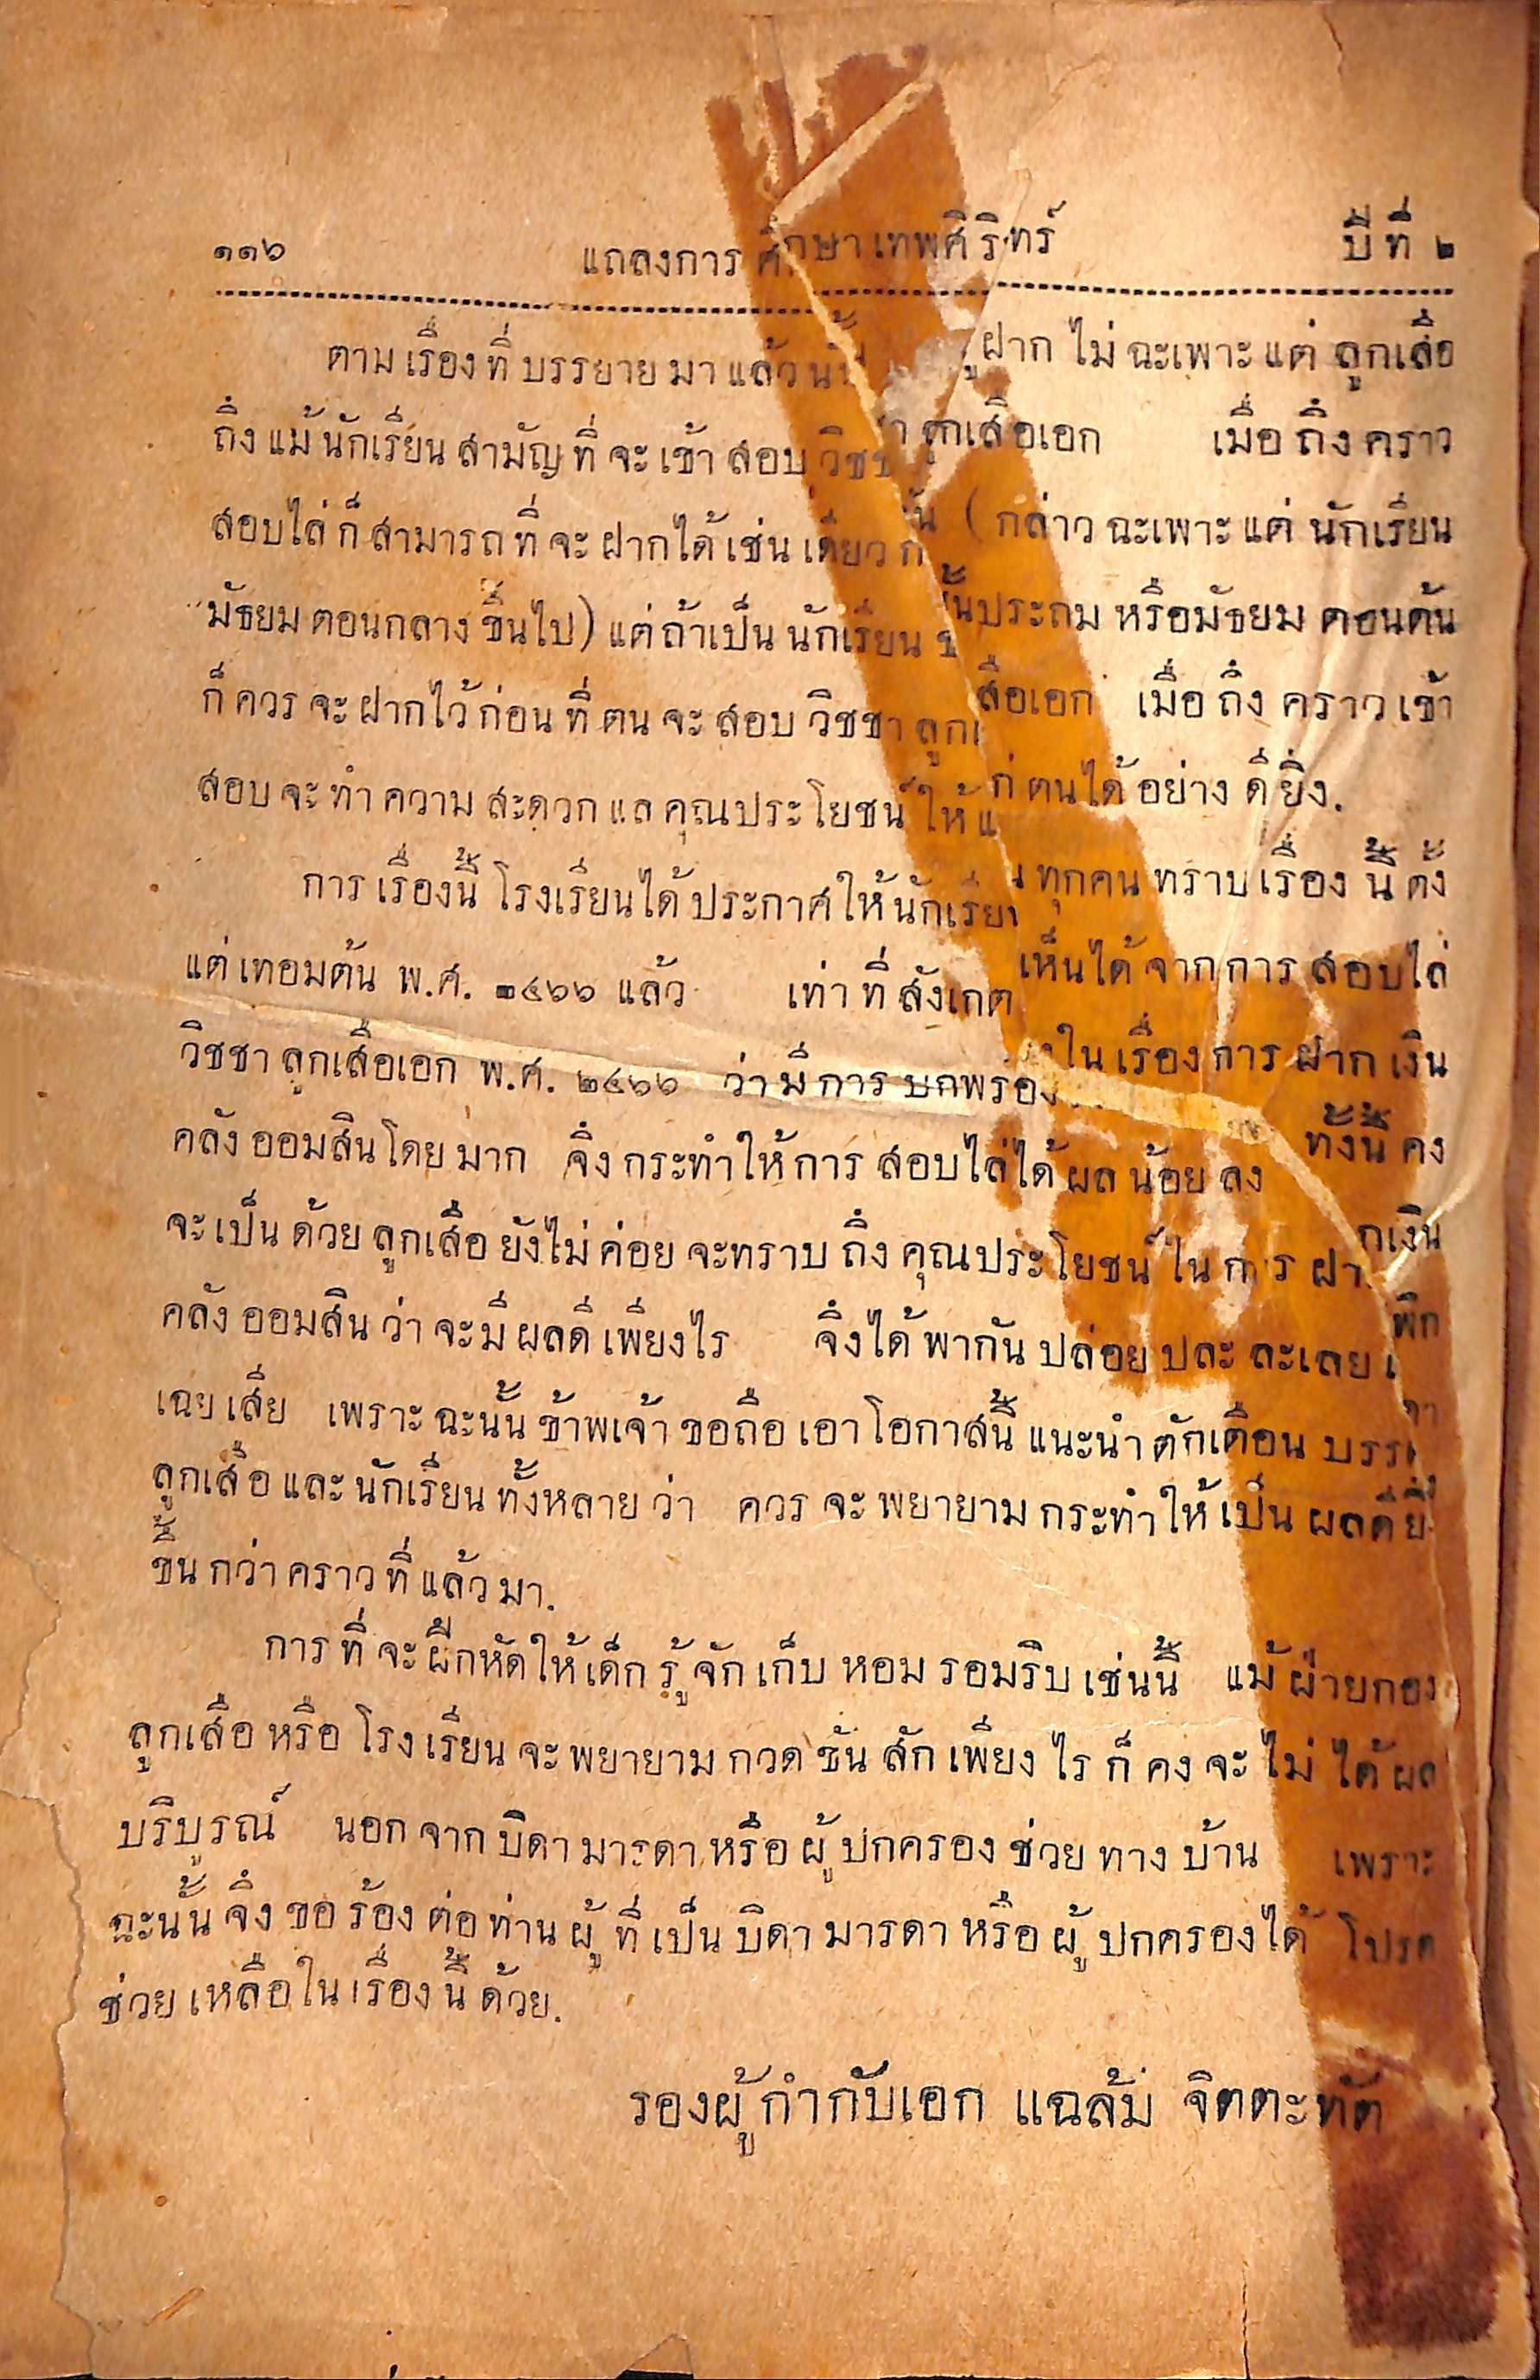 ๑๑๖ แถลงการศึกษาเทพศิรินทร์ ปีที่ ๒
ตามเรื่องที่บรรยายมาแล้วนั้น ฝากไม่ฉะเพาะแต่ลูกเสือ
ถึงแม้นักเรียนสามัญที่จะเข้าสอบวิชชาลูกเสือเอก เมื่อถึงคราว
สอบไล่ก็สามารถที่จะฝากได้เช่นเดียวกัน (กล่าวฉะเพาะแต่นักเรียน
มัธยมตอนกลางขึ้นไป) แต่ถ้าเป็นนักเรียนชั้นประถมหรือมัธยมตอนต้น
ก็ควรจะฝากไว้ก่อนที่ตนจะสอบวิชชาลูกเสือเอก เมื่อถึงคราวเข้า
สอบจะทำความสะดวกแลคุณประโยชน์ให้แก่ตนได้อย่างดียิ่ง.
การเรื่องนี้โรงเรียนได้ประกาศให้นักเรียนทุกคนทราบเรื่องนี้ตั้ง
แต่เทอมต้น พ.ศ. ๒๔๖๖ แล้ว เท่าที่สังเกตเห็นได้จากการสอบไล่
วิชชาลูกเสือเอก พ.ศ. ๒๔๖๖ ว่ามีการบกพร่องในเรื่องการฝากเงิน
คลังออมสินโดยมาก จึงกระทำให้การสอบไล่ได้ผลน้อยลง ทั้งนี้คง
จะเป็นด้วยลูกเสือยังไม่ค่อยจะทราบถึงคุณประโยชน์ในการฝากเงิน
คลังออมสินว่าจะมีผลดีเพียงไร จึงได้พากันปล่อยปละละเลยเพิก
เฉยเสีย เพราะฉะนั้นข้าพเจ้าขอถือเอาโอกาสนี้แนะนำตักเตือนบรรดา
ลูกเสือและนักเรียนทั้งหลายว่า ควรจะพยายามกระทำให้เป็นผลดียิ่ง
ขึ้นกว่าคราวที่แล้วมา.
การที่จะฝึกหัดให้เด็กรู้จักเก็บหอมรอมริบเช่นนี้ แม้ฝ่ายกอง
ลูกเสือหรือโรงเรียนจะพยายามกวดขันสักเพียงไรก็คงจะไม่ได้ผล
บริบูรณ์ นอกจากบิดามารดาหรือผู้ปกครองช่วยทางบ้าน เพราะ
ฉะนั้นจึงขอร้องต่อท่านผู้ที่เป็นบิดามารดาหรือผู้ปกครองได้โปรด
ช่วยเหลือในเรื่องนี้ด้วย.
รองผู้กำกับเอก แฉล้ม จิตตะทัต